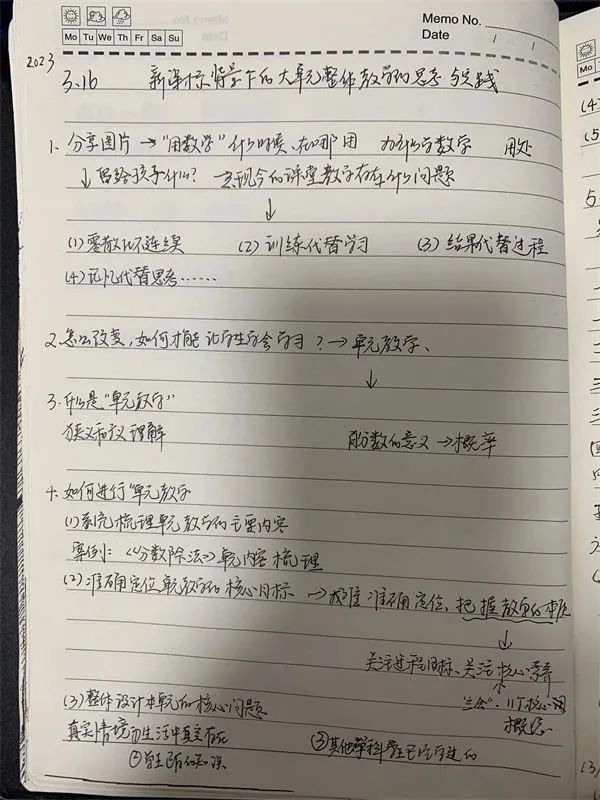 Memo No.
Mo Tu We Th Fr Sa Su
Date / /
2023
3.16 新课标背景下的大单元整体教学的思考与实践
1. 分享图片 → "用数学" 什么时候、在哪用 为什么学数学 用处
↓ 留给孩子什么? 现今的课堂教学存在什么问题
↓
(1) 零散化不连续 (2) 训练代替学习 (3) 结果代替过程
(4) 记忆代替思考……
2. 怎么改变,如何才能让学生学会学习? → 单元教学、
↓
3. 什么是"单元教学"
狭义和广义理解 百分数的意义 → 概率
4. 如何进行"单元教学
(1) 系统梳理单元教学的主要内容
案例:《分数除法》单元内容梳理
(2) 准确定位单元教学的核心目标 → 准确定位,把握教学的本质
↓
关注过程目标、关注核心素养
(3) 整体设计本单元的核心问题 "三会"、11个核心词
概念
真实情境而生活中真实存在
② 自己的知识 ③ 其他学科是已学过的
Mo
(4)
(5